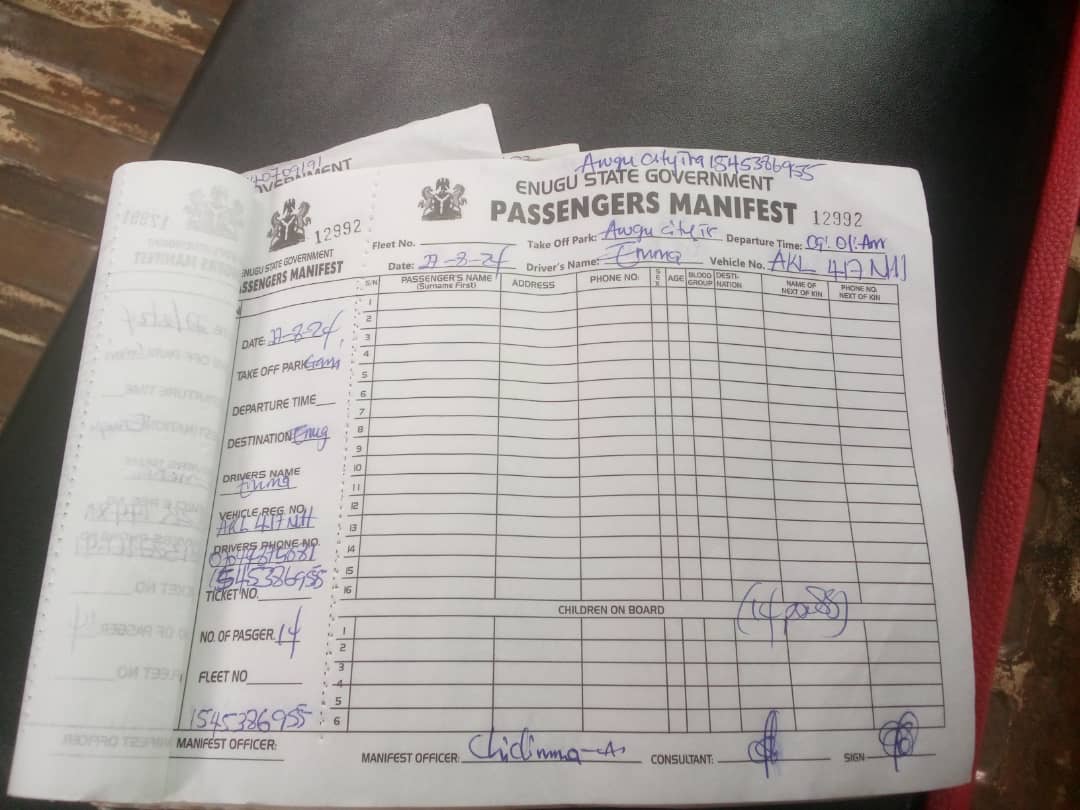 Awgu City Tra 1545386955
ENUGU STATE GOVERNMENT
PASSENGERS MANIFEST 12992
Fleet No. Take Off Park: Awgu city Tr Departure Time: 09:01 Am
Date: 27-8-24 Driver's Name: Emma Vehicle No. AKL 417 NH
S/N PASSENGER'S NAME (Surname First) ADDRESS PHONE NO. SEX AGE BLOOD GROUP DESTI-NATION NAME OF NEXT OF KIN PHONE NO. NEXT OF KIN
1
2
3
4
5
6
7
8
9
10
11
12
13
14
15
16
CHILDREN ON BOARD (14 pass)
1
2
3
4
5
6
MANIFEST OFFICER: Chidinma-A. CONSULTANT: SIGN
VERNMENT
12992
ENUGU STATE GOVERNMENT
SSENGERS MANIFEST
DATE: 27-8-24
TAKE OFF PARK
DEPARTURE TIME
DESTINATION Enug
DRIVERS NAME
Emma
VEHICLE REG. NO.
AKL 417 NH
DRIVERS PHONE NO.
1545386955
TICKET NO.
NO. OF PASGER. 14
FLEET NO
1545386955
MANIFEST OFFICER: